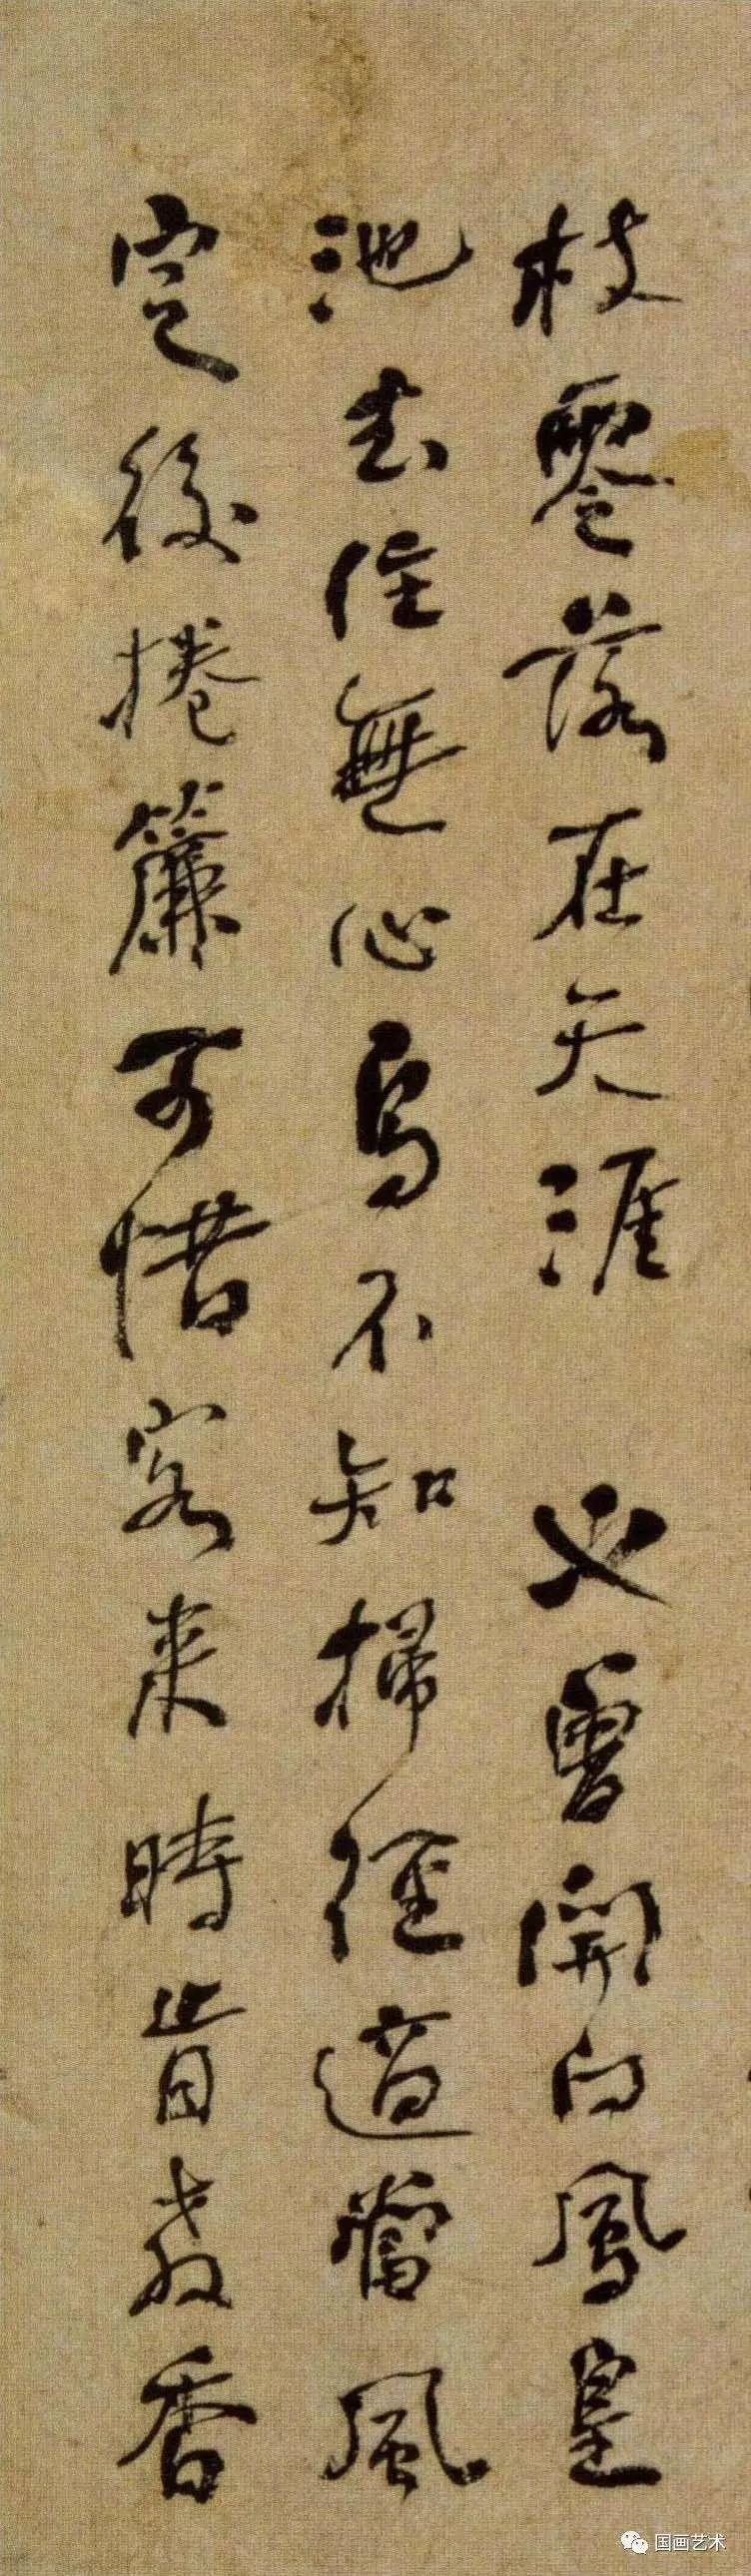 枝零落在天涯 也曾開向鳳皇
池去住無心鳥不知掃徑適當風
定後捲簾可惜客來時肯教香
国画艺术